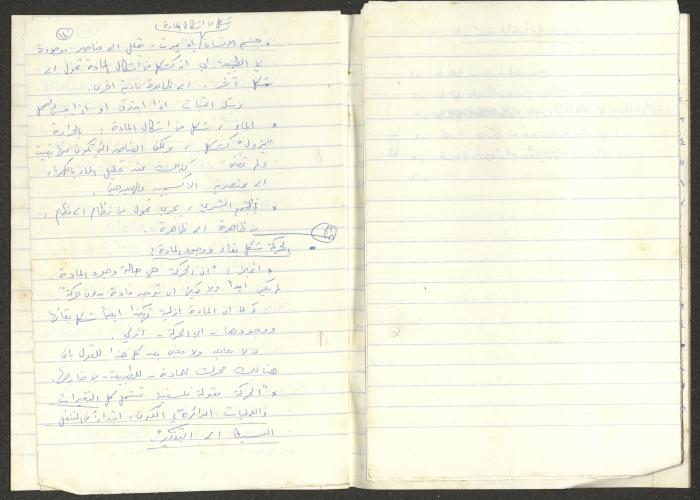 شكل من اشكال المادة
وجسم الانسان، إذ يموت، يتحلل الى عناصر موجودة
في الطبيعة. أي ان شكل من اشكال المادة تحول الى
شكل آخر. الى ظاهرة مادية اخرى.
النبات اذا احترق او اذا
* الماء، شكل من اشكال المادة: بالحرارة
"يزول" كشكل، ولكن العناصر التي تكون منها بقيت
ولم تفنى. كذلك عند تحليل الماء بالكهرباء
الى عنصريه الاكسجين والهيدروجين.
* في المجتمع البشري، يجري تحول من نظام الى نظام،
من ظاهرة الى ظاهرة.
الحركة شكل بقاء ووجود المادة:
* انجلز: "ان الحركة هي حالة وجود المادة.
لم يكن ابدا ولا يمكن ان توجد مادة بدون حركة".
وكما ان المادة ازلية فهكذا ايضا شكل بقائها
ووجودها - الحركة - ازلي.
ولا حاجة ولا معنى بعد كل هذا للقول بأن
هنالك محرك للمادة - للطبيعة - من خارجها.
* "الحركة مقولة فلسفية تشمل كل التغيرات
والعمليات الدائرة في الكون، ابتداء من التنقل
البسيط الى التفكير".